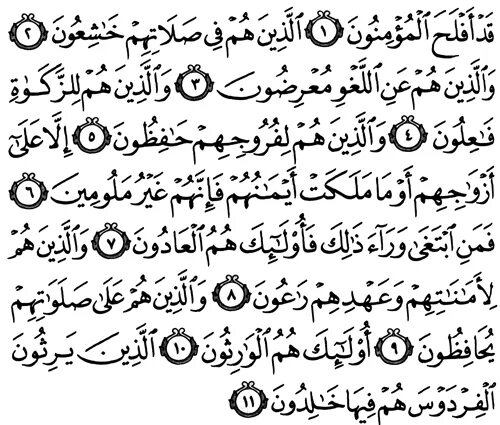 قَدْ أَفْلَحَ الْمُؤْمِنُونَ ١ الَّذِينَ هُمْ فِي صَلَاتِهِمْ خَاشِعُونَ ٢
وَالَّذِينَ هُمْ عَنِ اللَّغْوِ مُعْرِضُونَ ٣ وَالَّذِينَ هُمْ لِلزَّكَوٰةِ
فَاعِلُونَ ٤ وَالَّذِينَ هُمْ لِفُرُوجِهِمْ حَافِظُونَ ٥ إِلَّا عَلَىٰٓ
أَزْوَاجِهِمْ أَوْ مَا مَلَكَتْ أَيْمَانُهُمْ فَإِنَّهُمْ غَيْرُ مَلُومِينَ ٦
فَمَنِ ابْتَغَىٰ وَرَآءَ ذَٰلِكَ فَأُولَٰٓئِكَ هُمُ الْعَادُونَ ٧ وَالَّذِينَ هُمْ
لِأَمَانَاتِهِمْ وَعَهْدِهِمْ رَاعُونَ ٨ وَالَّذِينَ هُمْ عَلَىٰ صَلَوَاتِهِمْ
يُحَافِظُونَ ٩ أُولَٰٓئِكَ هُمُ الْوَارِثُونَ ١٠ الَّذِينَ يَرِثُونَ
الْفِرْدَوْسَ هُمْ فِيهَا خَالِدُونَ ١١